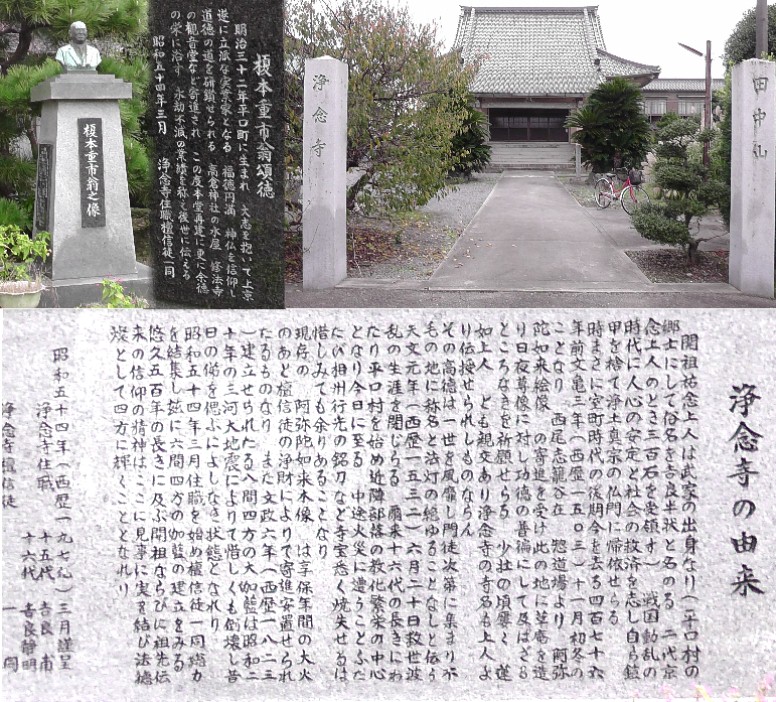 榎本重市翁之像
榎本重市翁頌徳
明治三十二年平口町に生まれ 大志を抱いて上京
遂に立派な実業家となる 福徳円満 神仏を信仰し
道徳の道を研鑽せられる 高倉神社の水屋 修法寺
の観音堂など寄進され この度本堂再建に更に余徳
の栄に浴す 永劫不滅の業績を称え後世に伝える
昭和五十四年三月 浄念寺住職檀信徒一同
浄念寺
田中山
浄念寺の由来
開祖祐念上人は武家の出身なり(平口村の
郷士にして俗名を吉良半状と名のる 二代京
念上人のとき三百石を受領す) 戦国動乱の
時代に人心の安定と社会の救済を志し自ら鎧
甲を捨て浄土真宗の仏門に帰依せらる
時まさに室町時代の後期今を去る四百七十六
年前文亀三年(西歴一五〇三)十一月初冬の
ことなり 西尾志籠谷在 惣道場より 阿弥
陀如来絵像 の寄進を受け此の地に草庵を造
り日夜尊像に対し功徳の普偏にして及ばざる
ところなきを祈願せらる 少壮の頃屡く 蓮
如上人 とも親交あり浄念寺の寺名も上人よ
り伝授せられしものならん
その高徳は一世を風靡し門徒次第に集まりが
毛の地に称名と法灯の絶ゆることなしと伝う
天文元年(西歴一五三二)六月二十日救世波
乱の生涯を閉じらる 爾来十六代の長きにわ
たり平口村を始め近隣部落の教化繁栄の中心
となり今日に至る 中途火災に遭うことふた
たび相州行光の銘刀など寺宝悉く焼失せるは
惜しみても余りあることなり
現存の 阿弥陀如来木像 は享保年間の大火
のあと檀信徒の浄財によりて寄進安置せられ
たるものなり また文政六年(西歴一八二三
)建立せられたる八間四方の大伽藍は昭和二
十年の三河大地震によりて惜しくも倒壊し昔
日の俤を偲ぶによしなき状態となれり
昭和五十四年三月住職を始め檀信徒一同総力
を結集し玆に六間四方の伽藍の建立をみる
悠久五百年の長きに及ぶ開祖ならびに祖先伝
来の信仰の精神はここに見事に実を結び法徳
燦として四方に輝くこととなれり
昭和五十四年(西歴一九七九)三月謹呈
浄念寺住職 十五代 吉良 甫
十六代 吉良静明
浄念寺檀信徒 一同